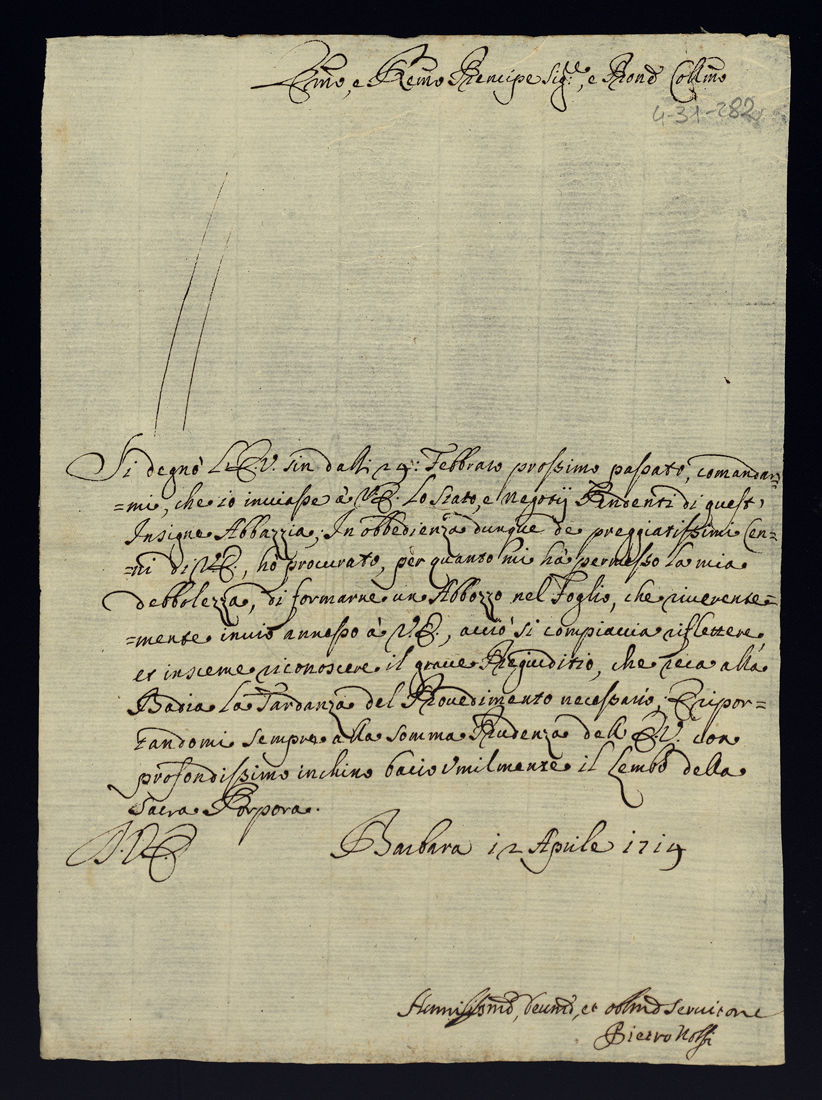 Emo, e Remo Prencipe Sig.re, e Pron Collmo
4-31-282
Si degnò L'E.V. sin dalli 24: Febbraro prossimo passato, comandar=
=mi, che io inviasse à V.E. Lo Stato, e negotij Pendenti di quest'
Insigne Abbazzia; In obbedienza dunque de preggiatissimi Cen=
=ni di V.E., hò procurato, per quanto mi hà permesso la mia
debbolezza, di formarne un Abbozzo nel Foglio, che riverente=
=mente invio annesso à V.E., acciò si compiaccia riflettere,
et insieme riconoscere il grave Pregiuditio, che reca alla
Badia La Tardanza del Provedimento necessario; E ripor=
tandomi sempre alla somma Prudenza dell' E.V. con
profondissimo inchino bacio Vmilmente il Lembo della
Sacra Porpora.
D.V.E. Barbara 12 Aprile 1714
Humilissmo, Devmo, et oblmo Servitore
Pietro